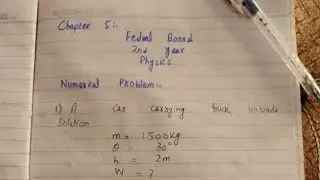 Chapter 5:-
Fedral Board
2nd year
Physics
Numerical Problem:-
1) A car carrying truck unloads
Solution
m = 1500kg
θ = 30°
h = 2m
W = ?